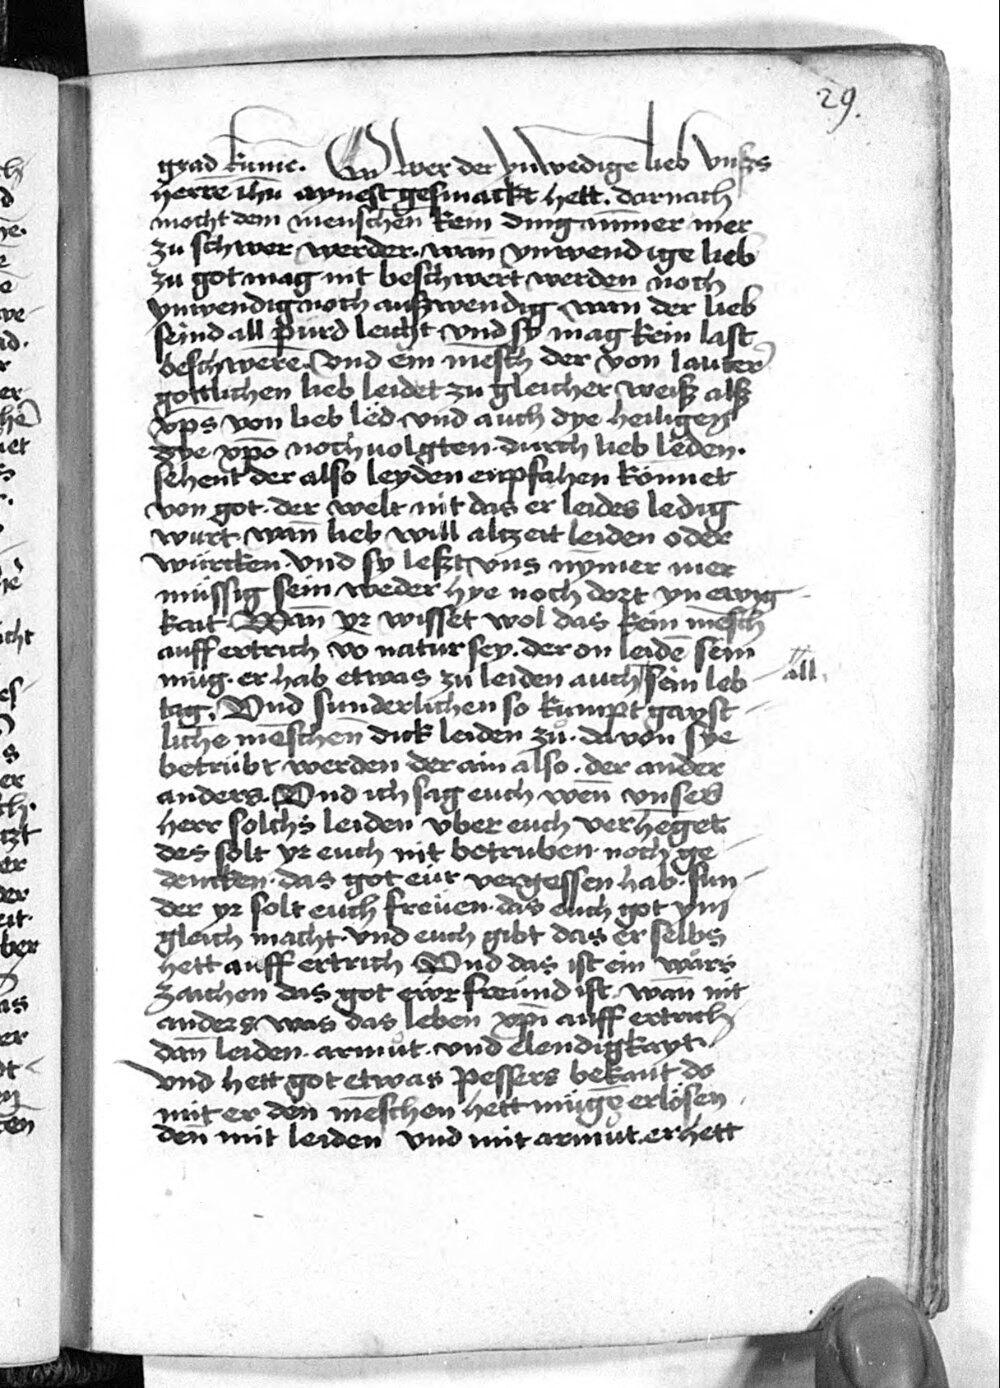 29.
grad kume. Wer der ynwedige lieb vnsß
herre ihu aynest gesmackt hett. darnach
mocht dem menschen kein ding nimer mer
zu schwer werder. wan ynwendige lieb
zu got mag nit beschwert werden noch
ynwendig noch außwendig wan der lieb
seind all pürd leicht vnd sy mag kein last
beschwere. Vnd ein mesch der von lauter
gottlichen lieb leidet zu gleicher weiß alß
xps von lieb led vnd auch dye heiligen
dye xpo nochuolgten durch lieb leden.
sehent der also leyden enpfahen konnet
von got. der welt nit das er leides ledig
wurt. wan lieb will altzeit leiden oder
würcken. vnd sy leßt vns nymer mer
müssig sein weder hye noch dort yn ewig
kait Wan yr wisset wol das kein mesch
auff ertrich vo natur sey. der on leide sein
müg. er hab etwas zu leiden auch sein leb
all.
tag. Vnd sunderlichen so kumpt gayst
liche meschen dick leiden zu. da von sye
betrübt werden der ain also. der ander
anders. Vnd ich sag euch wen vnser
herr solchs leiden vber euch verheget
des solt yr euch nit betruben noch ge
dencken. das got eür vergessen hab. sun
der yr solt euch freüen. das euch got ym
gleich macht vnd euch gibt das er selbs
hett auff ertrich Vnd das ist ein wars
zaichen das got ewr freünd ist. wan nit
anders was das leben xpi auff ertrich
dan leiden. armut. vnd elendigkayt.
vnd hett got etwas pessers bekant do
mit er den meschen hett müge erlösen
den mit leiden vnd mit armut. er hett